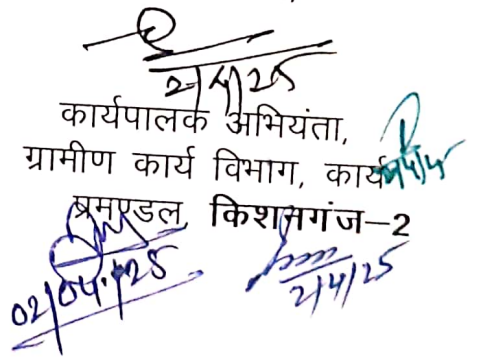 2/4/25
कार्यपालक अभियंता,
ग्रामीण कार्य विभाग, कार्य
प्रमण्डल, किशनगंज-2
02/04/25
2/4/25